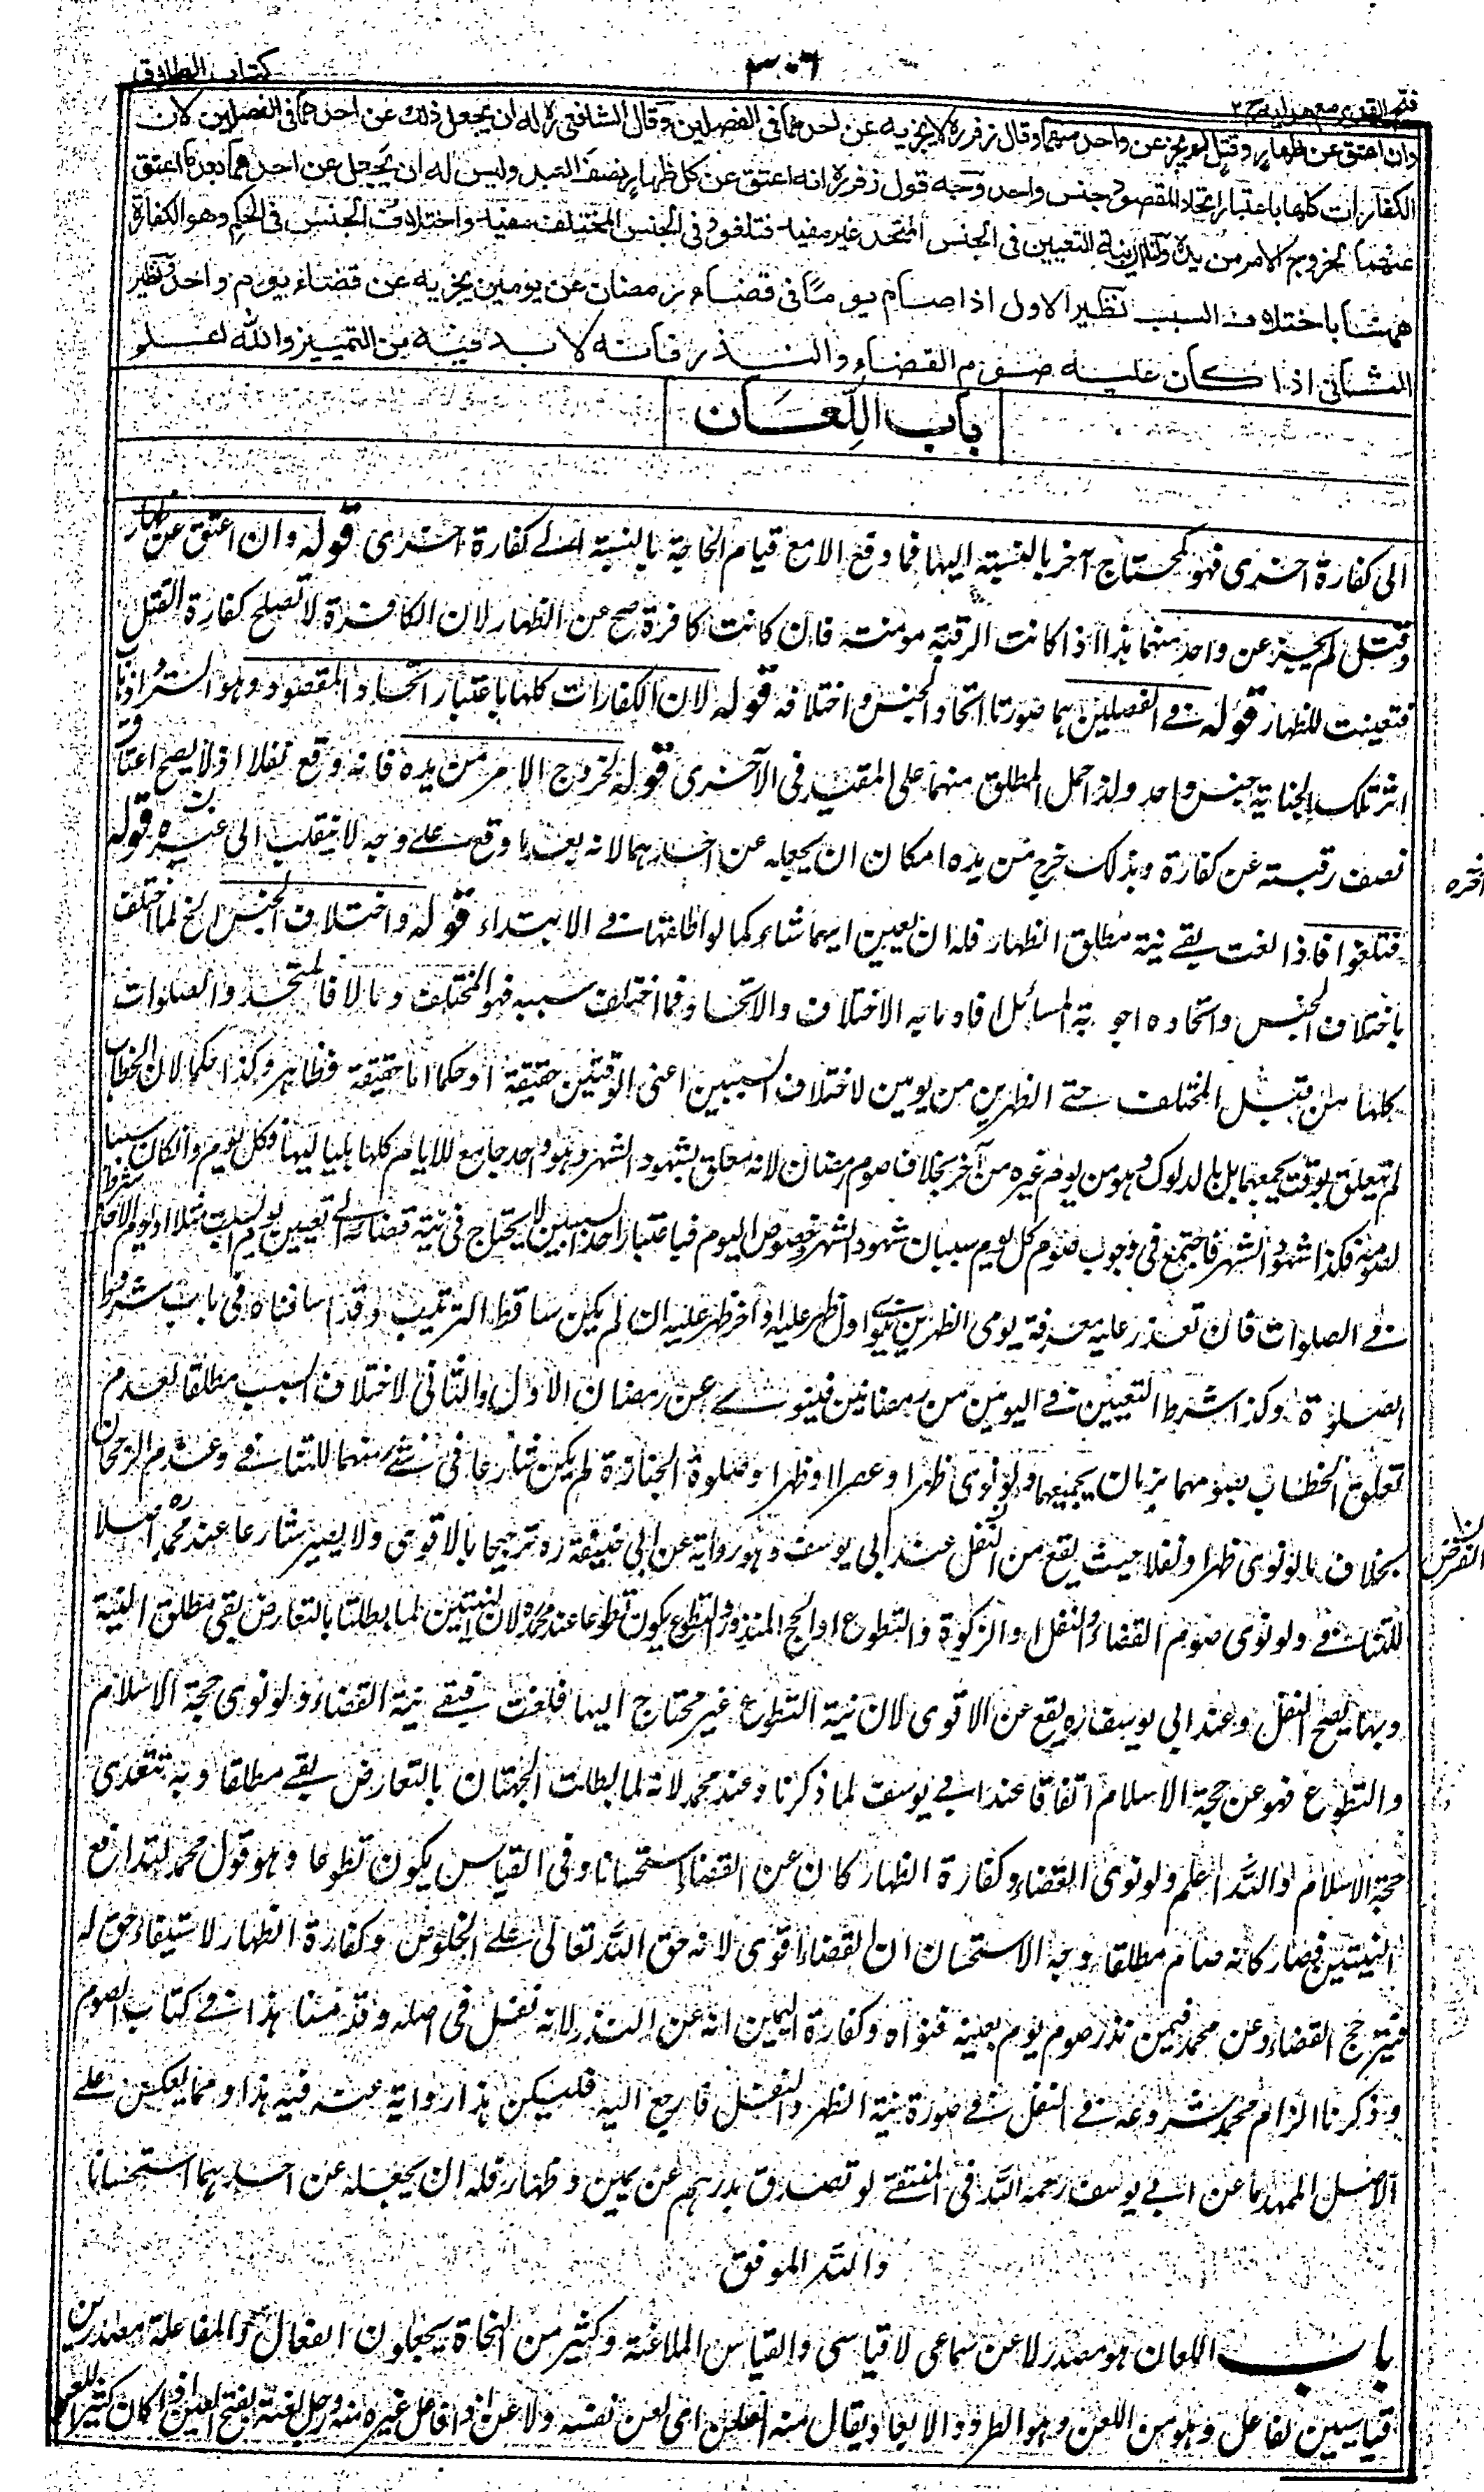 كتاب الطلاق
٣٠٦
فتح القدير مع هدايه ج ٢
وان اعتق عن ظهار وقتل لم يجز عن واحد منهما وقال زفر ره لا يجزيه عن احدهما فى الفصلين وقال الشافعى ره له ان يجعل ذلك عن احدهما فى الفصلين لان
الكفارات كلها باعتبار اتحاد المقصود جنس واحد وجه قول زفر ره انه اعتق عن كل ظهار نصف العبد وليس له ان يجعل عن احدهما بعد ما اعتق
عنهما لخروج الامر من يده ولنا ان نية التعيين فى الجنس المتحد غير مفيد فتلغو وفى الجنس المختلف مفيد واختلاف الجنس فى الحكم وهو الكفارة
ههنا باختلاف السبب نظير الاول اذا صام يوما فى قضاء رمضان عن يومين يجزيه عن قضاء يوم واحد ونظير
الثانى اذا كان عليه صوم القضاء والنذر فانه لا بد فيه من التمييز والله اعلم
باب اللعان
الى كفارة اخرى فهو كمحتاج آخر بالنسبة اليها فما وقع الا مع قيام الحاجة بالنسبة الى كفارة اخرى قوله وان اعتق عن ظهار
وقتل لم يجز عن واحد منهما هذا اذا كانت الرقبة مومنة فان كانت كافرة صح عن الظهار لان الكافرة لا تصلح كفارة القتل
فتعينت للظهار قوله فى الفصلين هما صورتا اتحاد الجنس واختلافه قوله لان الكفارات كلها باعتبار اتحاد المقصود وهو الستر واذهاب
اثر تلك الجناية جنس واحد ولذا حمل المطلق منهما على المقيد فى الآخرى قوله لخروج الامر من يده فانه وقع نفلا اذ لا يصح اعتاق
نصف رقبة عن كفارة وبذلك خرج من يده امكان ان يجعله عن احدهما لانه بعد ما وقع على وجه لا ينقلب الى غيره قوله
فتلغوا فاذا لغت بقے نية مطلق الظهار فله ان يعين ايهما شاء كما لو اطلقها فى الابتداء قوله واختلاف الجنس الخ لما اختلف
باختلاف الجنس واتحاده اجوبة المسائل افاد ما به الاختلاف والاتحاد فما اختلف سببه فهو المختلف وما لا فالمتحد والصلوات
كلها من قبيل المختلف حتے الظهرين من يومين لاختلاف السببين اعنى الوقتين حقيقة او حكما اما حقيقة فظاهر وكذا حكما لان الخطاب
لم يتعلق بوقت يجمعهما بل بالدلوك وهو من يوم غيره من آخر بخلاف صوم رمضان لانه معلق بشهود الشهر وهو واحد جامع للايام كلها بلياليها فكل يوم وان كان سببا
لصومه فكذا شهود الشهر فاجتمع فى وجوب صوم كل يوم سببان شهود الشهر وخصوص اليوم فباعتبار احد السببين لا يحتاج فى نية قضائه الى تعيين يوم السبت مثلا او يوم الاحد
فى الصلوات فان تعذر عليه معرفة يومى الظهرين ينوى اول ظهر عليه او آخر ظهر عليه ان لم يكن ساقط الترتيب وقد اسلفناه فى باب شروط
الصلوة وكذا اشترط التعيين فى اليومين من رمضانين فينوى عن رمضان الاول والثانى لاختلاف السبب مطلقا لعدم
تعلق الخطاب بصومهما بزمان يجمعهما ولو نوى ظهرا وعصرا او ظهرا وصلوة الجنازة لم يكن شارعا فى شئ منهما للتنافى وعدم الرجحان
بخلاف ما لو نوى ظهرا ونفلا حيث يقع من النفل عند ابى يوسف وهو رواية عن ابى حنيفة ره ترجيحا بالاقوى ولا يصير شارعا عند محمد ره اصلا
للتنافى ولو نوى صوم القضاء والنفل او الزكوة والتطوع او الحج المنذور والتطوع يكون تطوعا عند محمد ره لان النيتين لما بطلتا بالتعارض بقى مطلق النية
وبها يصح النفل وعند ابى يوسف ره يقع عن الاقوى لان نية التطوع غير محتاج اليها فلغت فبقے نية القضاء ولو نوى حجة الاسلام
والتطوع فهو عن حجة الاسلام اتفاقا عند ابى يوسف لما ذكرنا وعند محمد لانه لما بطلت الجهتان بالتعارض بقے مطلقا وبه تتعدى
حجة الاسلام والله اعلم ولو نوى القضاء وكفارة الظهار كان عن القضاء استحسانا وفى القياس يكون تطوعا وهو قول محمد لتدافع
النيتين فصار كانه صام مطلقا وجه الاستحسان ان القضاء اقوى لانه حق الله تعالى على الخلوص وكفارة الظهار لاستيفاء حق له
فيترجح القضاء وعن محمد فيمن نذر صوم يوم بعينه فنواه وكفارة اليمين انه عن النذر لانه نفل فى اصله وقدمنا هذا فى كتاب الصوم
وذكرنا الزام محمد شروعه فى النفل فى صورة نية الظهر والنفل فارجع اليه فليكن هذا رواية عنه فيه هذا ومما يعكس على
الاصل الممهد ما عن ابى يوسف رحمه الله فى المنتقے لو تصدق بدرهم عن يمين وظهار فله ان يجعله عن احدهما استحسانا
والله الموفق
باب اللعان هو مصدر لاعن سماعى لا قياسى والقياس الملاعنة وكثير من النحاة يجعلون الفعال والمفاعلة مصدرين
قياسيين لفاعل وهو من اللعن وهو الطرد والابعاد يقال منه التعن اى لعن نفسه ولاعن اذا فاعل غيره منه ورجل لعنة بفتح العين اذا كان كثير اللعن